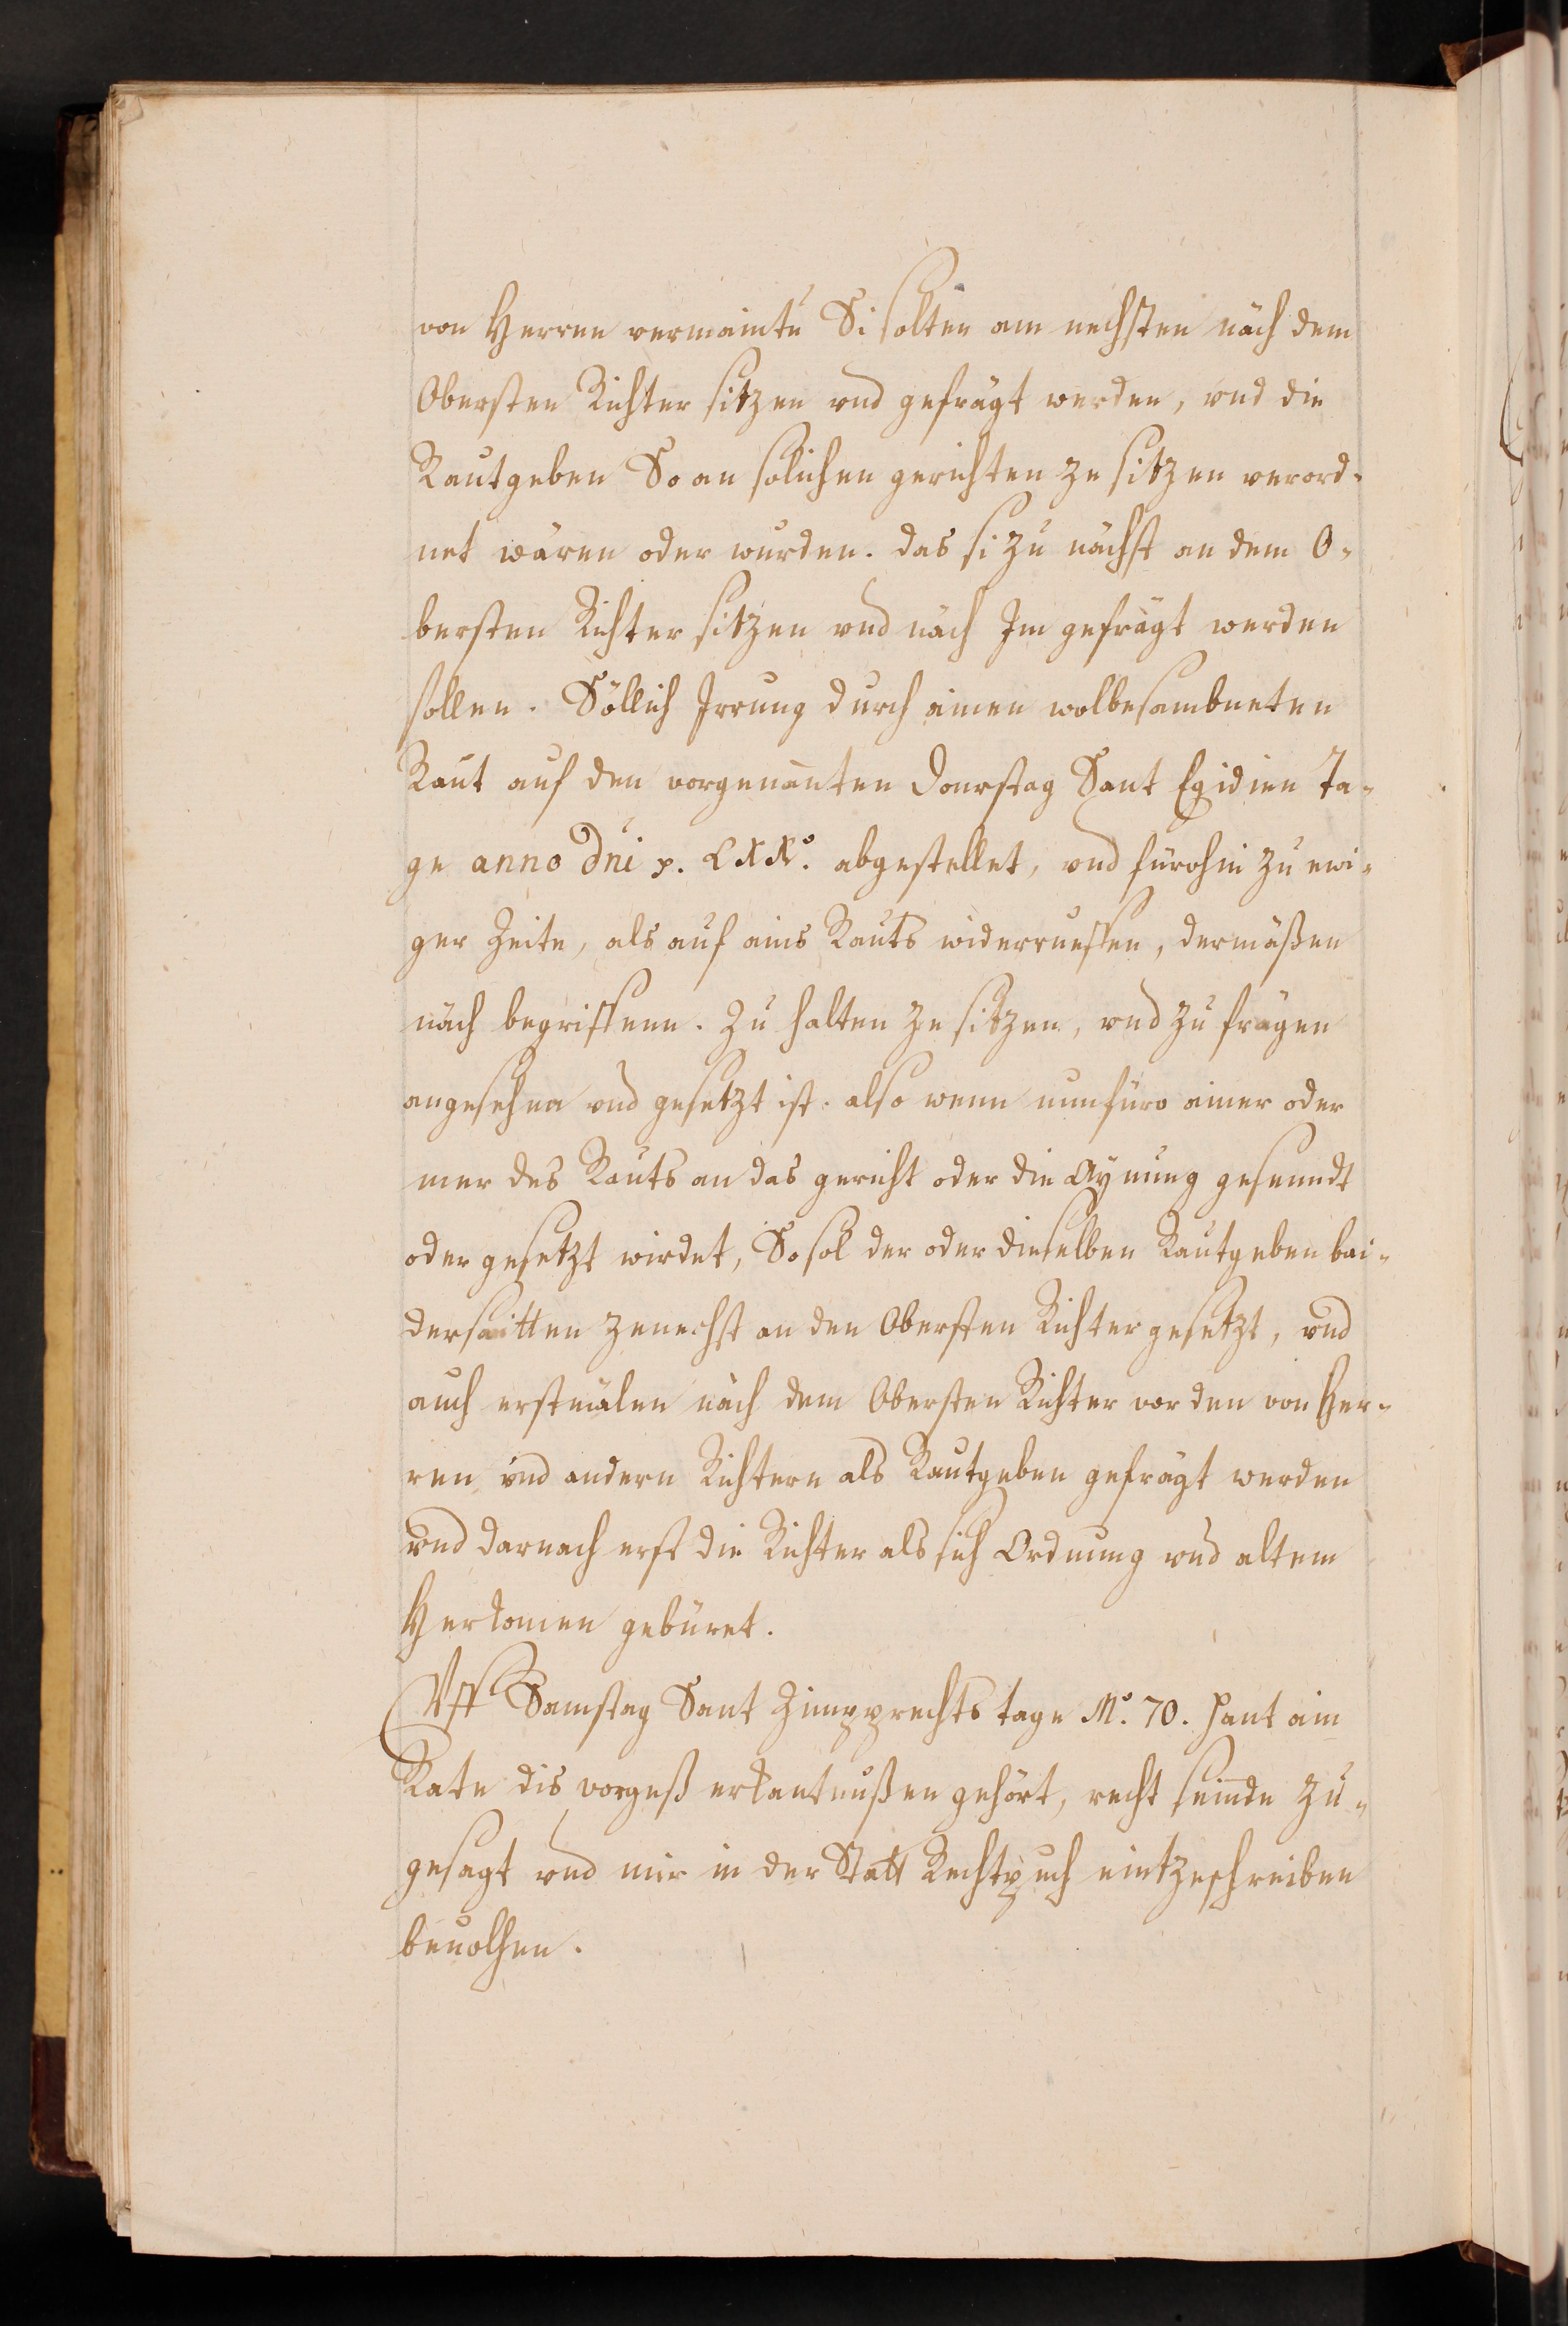 von Herren vermainte Si solten am nechsten näch dem
Obersten Richter sitzen vnd gefrägt werden, vnd die
Rautgeben So an solichen gerichten ze sitzen verord-
net wären oder wurden. das si zu nächst an dem O-
bersten Richter sitzen vnd näch Im gefrägt werden
sollen. Söllich Irrung durch ainen wolbesambneten
Raut auf den vorgenanten Donrstag Sant Egidien Ta-
ge anno dni p. LXX°. abgestellet, vnd fürohin zu ewi-
ger Zeite, als auf ains Rauts widerrueffen, dermäßen
näch begriffenn. Zu halten ze sitzen, vnd zu frägen
angesehen vnd gesetzt ist. also wenn nunfüro ainer oder
mer des Rauts an das gericht oder die Aynung gesenndt
oder gesetzt wirdet, So sol der oder dieselben Rautgeben bai-
dersaitten zenechst an den Obersten Richter gesetzt, vnd
auch erstmälen näch dem Obersten Richter vor den von Her-
ren vnd andern Richtern als Rautgeben gefrägt werden
vnd darnach erst die Richter als sich Ordnung vnd altem
Herkomen gebüret.
Vff Samstag Sant Zimpprechts tage M°. 70. Hant ain
Rate dis vorgeß erkantnußen gehört, recht seinde zu-
gesagt vnd mir in der Statt Rechtpuch eintzeschreiben
beuolhen.